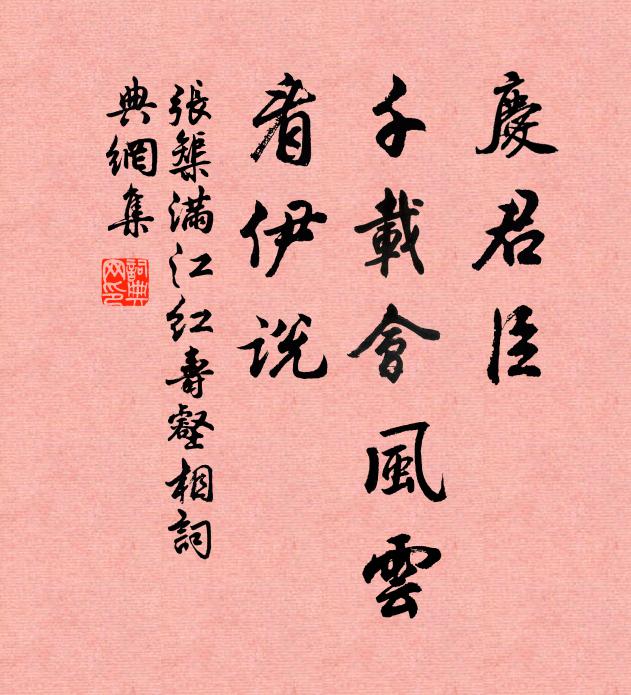 慶君臣
千載會風雲
看伊說
張榘滿江紅壽壑相詞
典網集
詞典網印